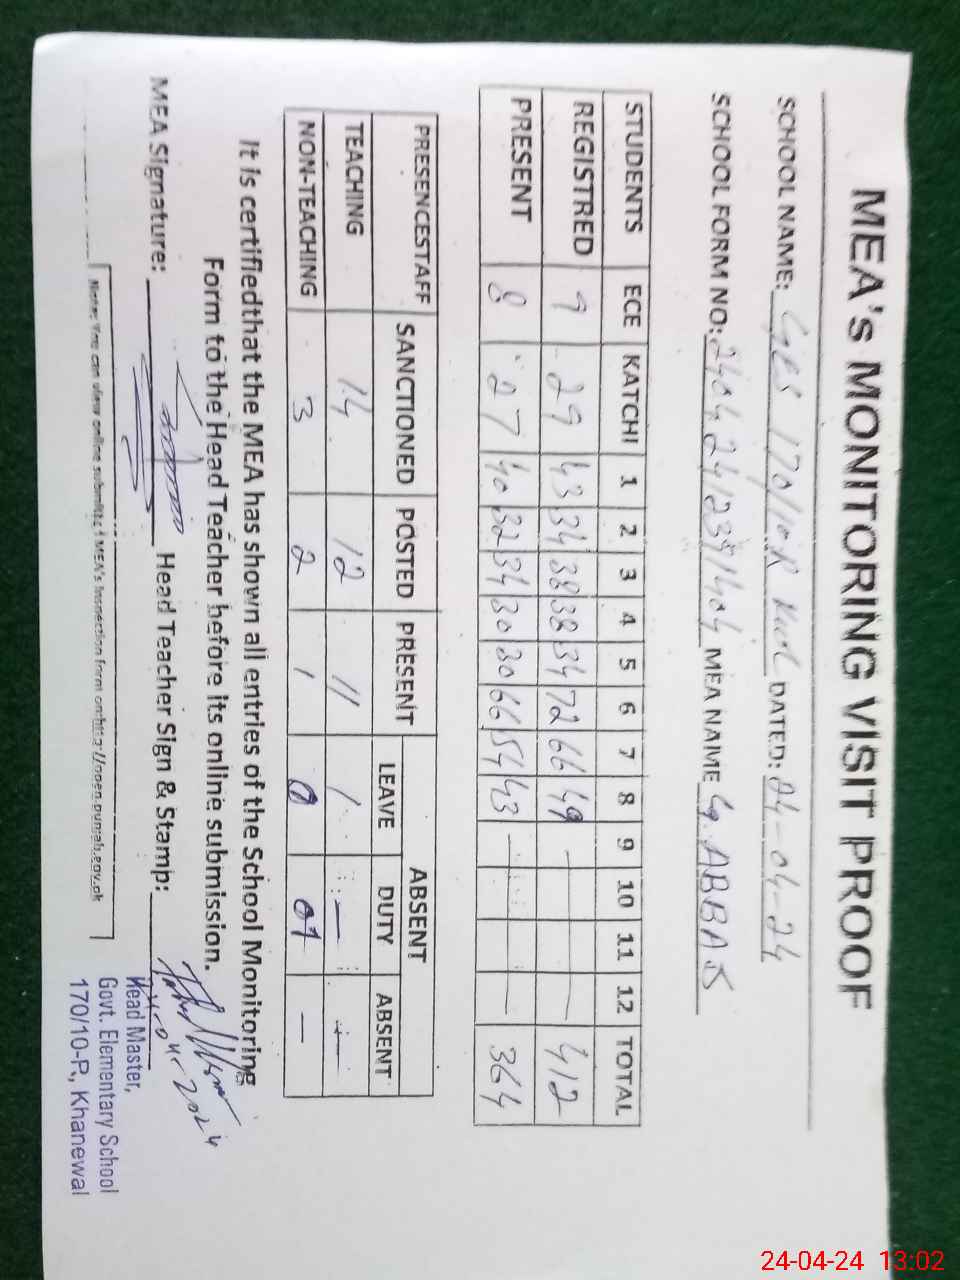 MEA's MONITORING VISIT PROOF
SCHOOL NAME: GES 170/10R Kwl DATED: 24-04-24
SCHOOL FORM NO: MEA NAME ABBAS
STUDENTS ECE KATCHI 1 2 3 4 5 6 7 8 9 10 11 12 TOTAL
REGISTRED 9 29 43 34 38 38 34 72 66 49 — — 412
PRESENT 8 27 40 32 34 30 30 66 54 43 — — 364
PRESENCESTAFF SANCTIONED POSTED PRESENT ABSENT
LEAVE DUTY ABSENT
TEACHING 14 12 11 1 — —
NON-TEACHING 3 2 1 0 01 —
It is certifiedthat the MEA has shown all entries of the School Monitoring
Form to the Head Teacher before its online submission.
MEA Signature: Head Teacher Sign & Stamp:
24-04-2024
Note: You can view online submitted MEA's Inspection form on:http://open.punjab.gov.pk
Head Master,
Govt. Elementary School
170/10-R, Khanewal
24-04-24 13:02